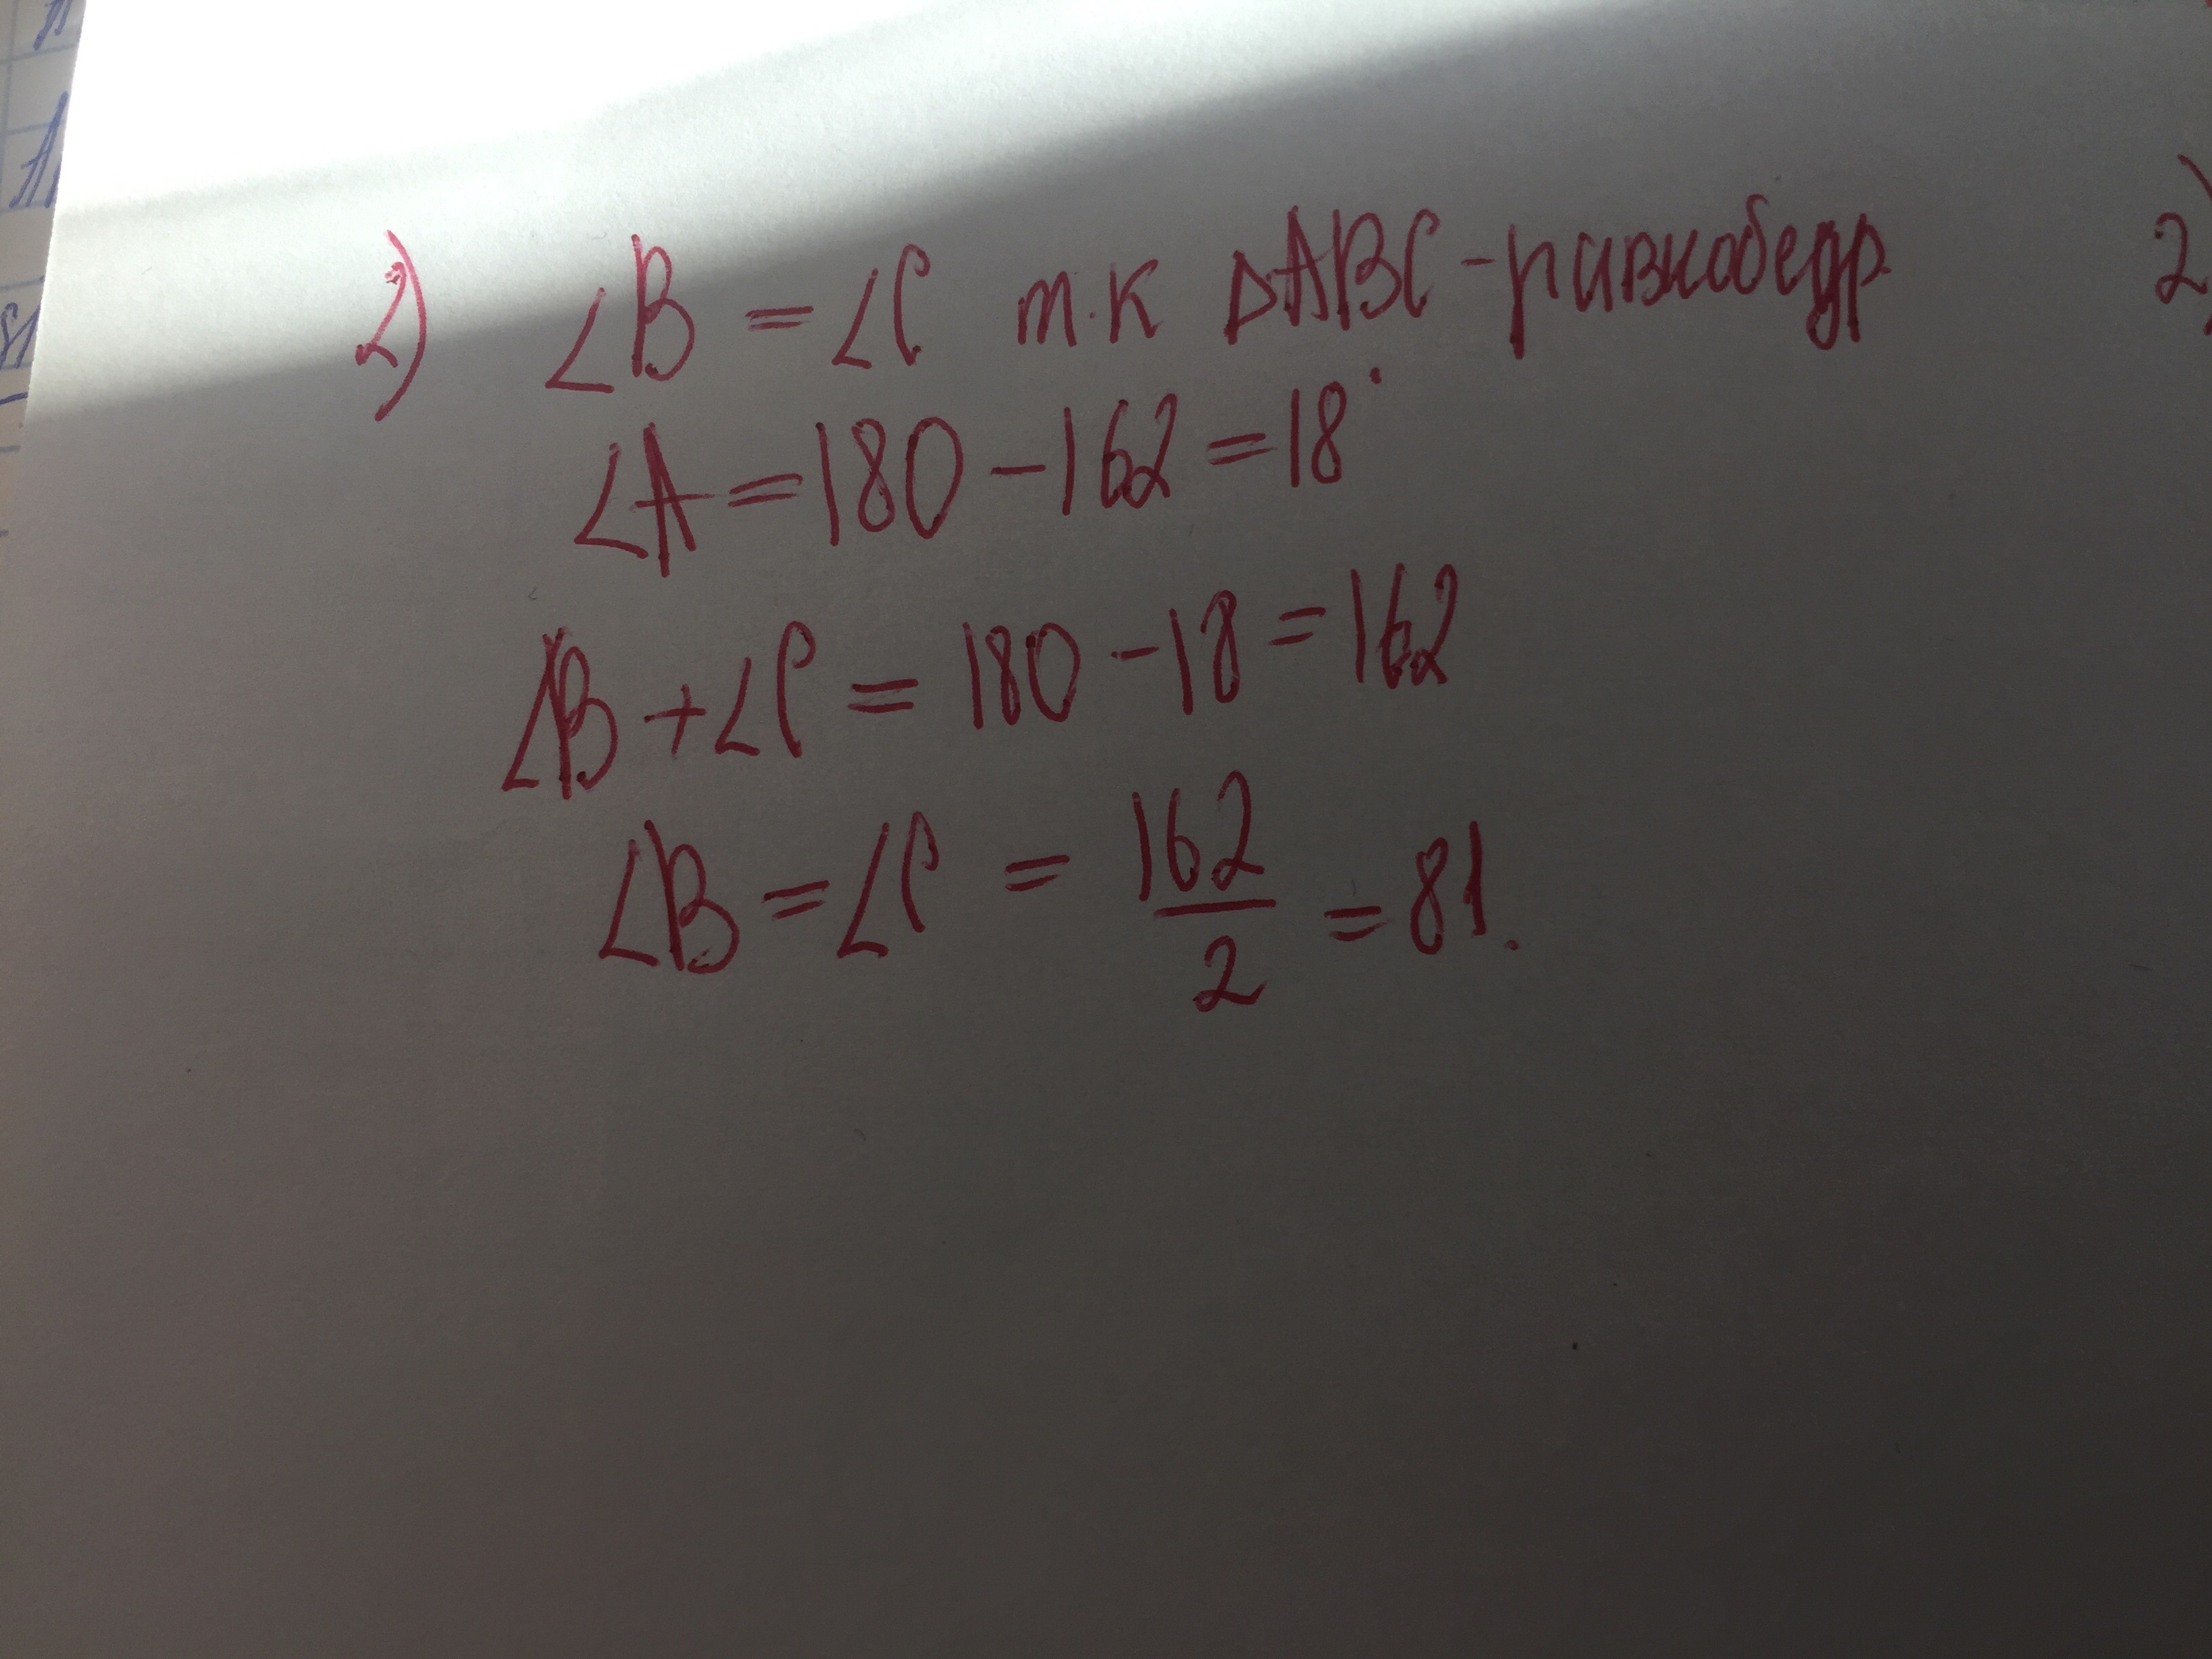 2) ∠B = ∠C т.к ΔABC - равнобедр.
∠A = 180 - 162 = 18°
∠B + ∠C = 180 - 18 = 162
∠B = ∠C = 162/2 = 81.
2)